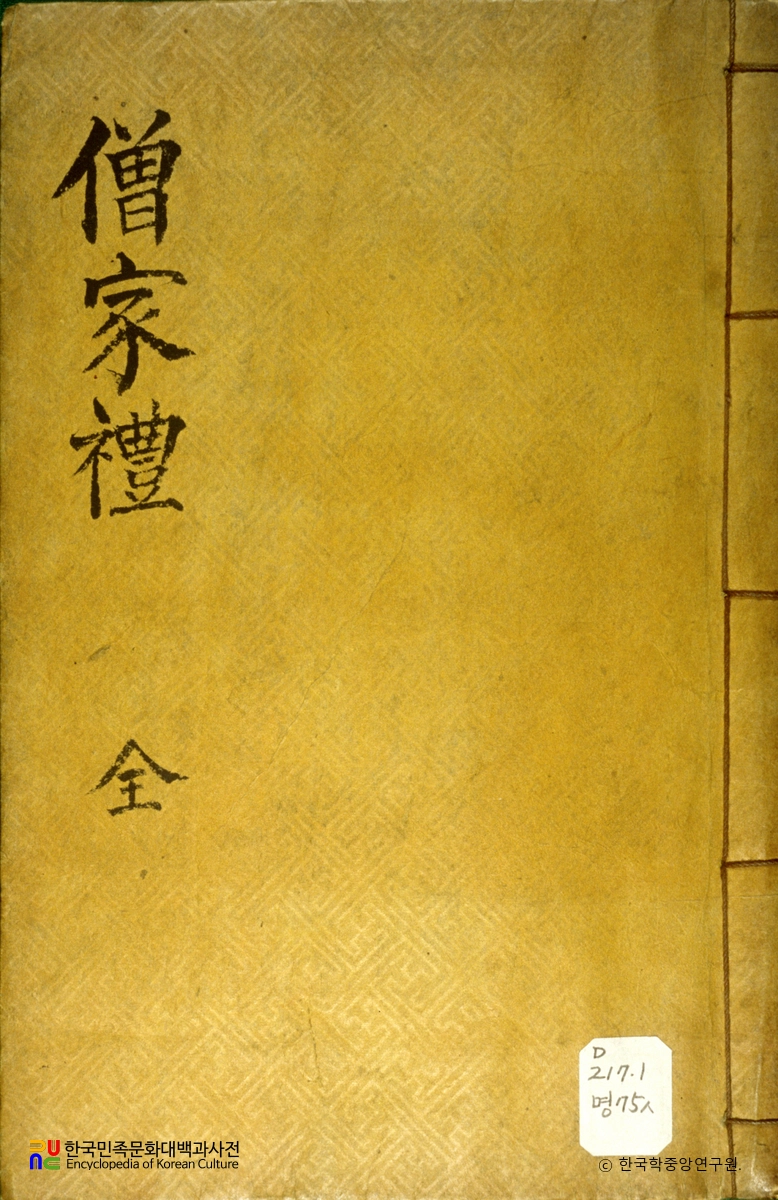 僧家禮 全
D
217.1
명75ㅅ
한국민족문화대백과사전
Encyclopedia of Korean Culture
ⓒ 한국학중앙연구원.